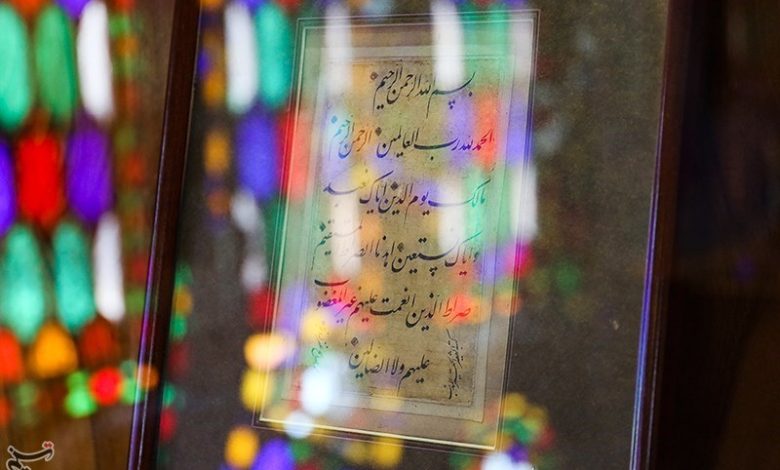 بسم الله الرحمن الرحیم
الحمد لله رب العالمین الرحمن الرحیم
مالک یوم الدین ایاک نعبد
و ایاک نستعین اهدنا الصراط المستقیم
صراط الذین انعمت علیهم غیر المغضوب
علیهم ولا الضالین
تسنیم